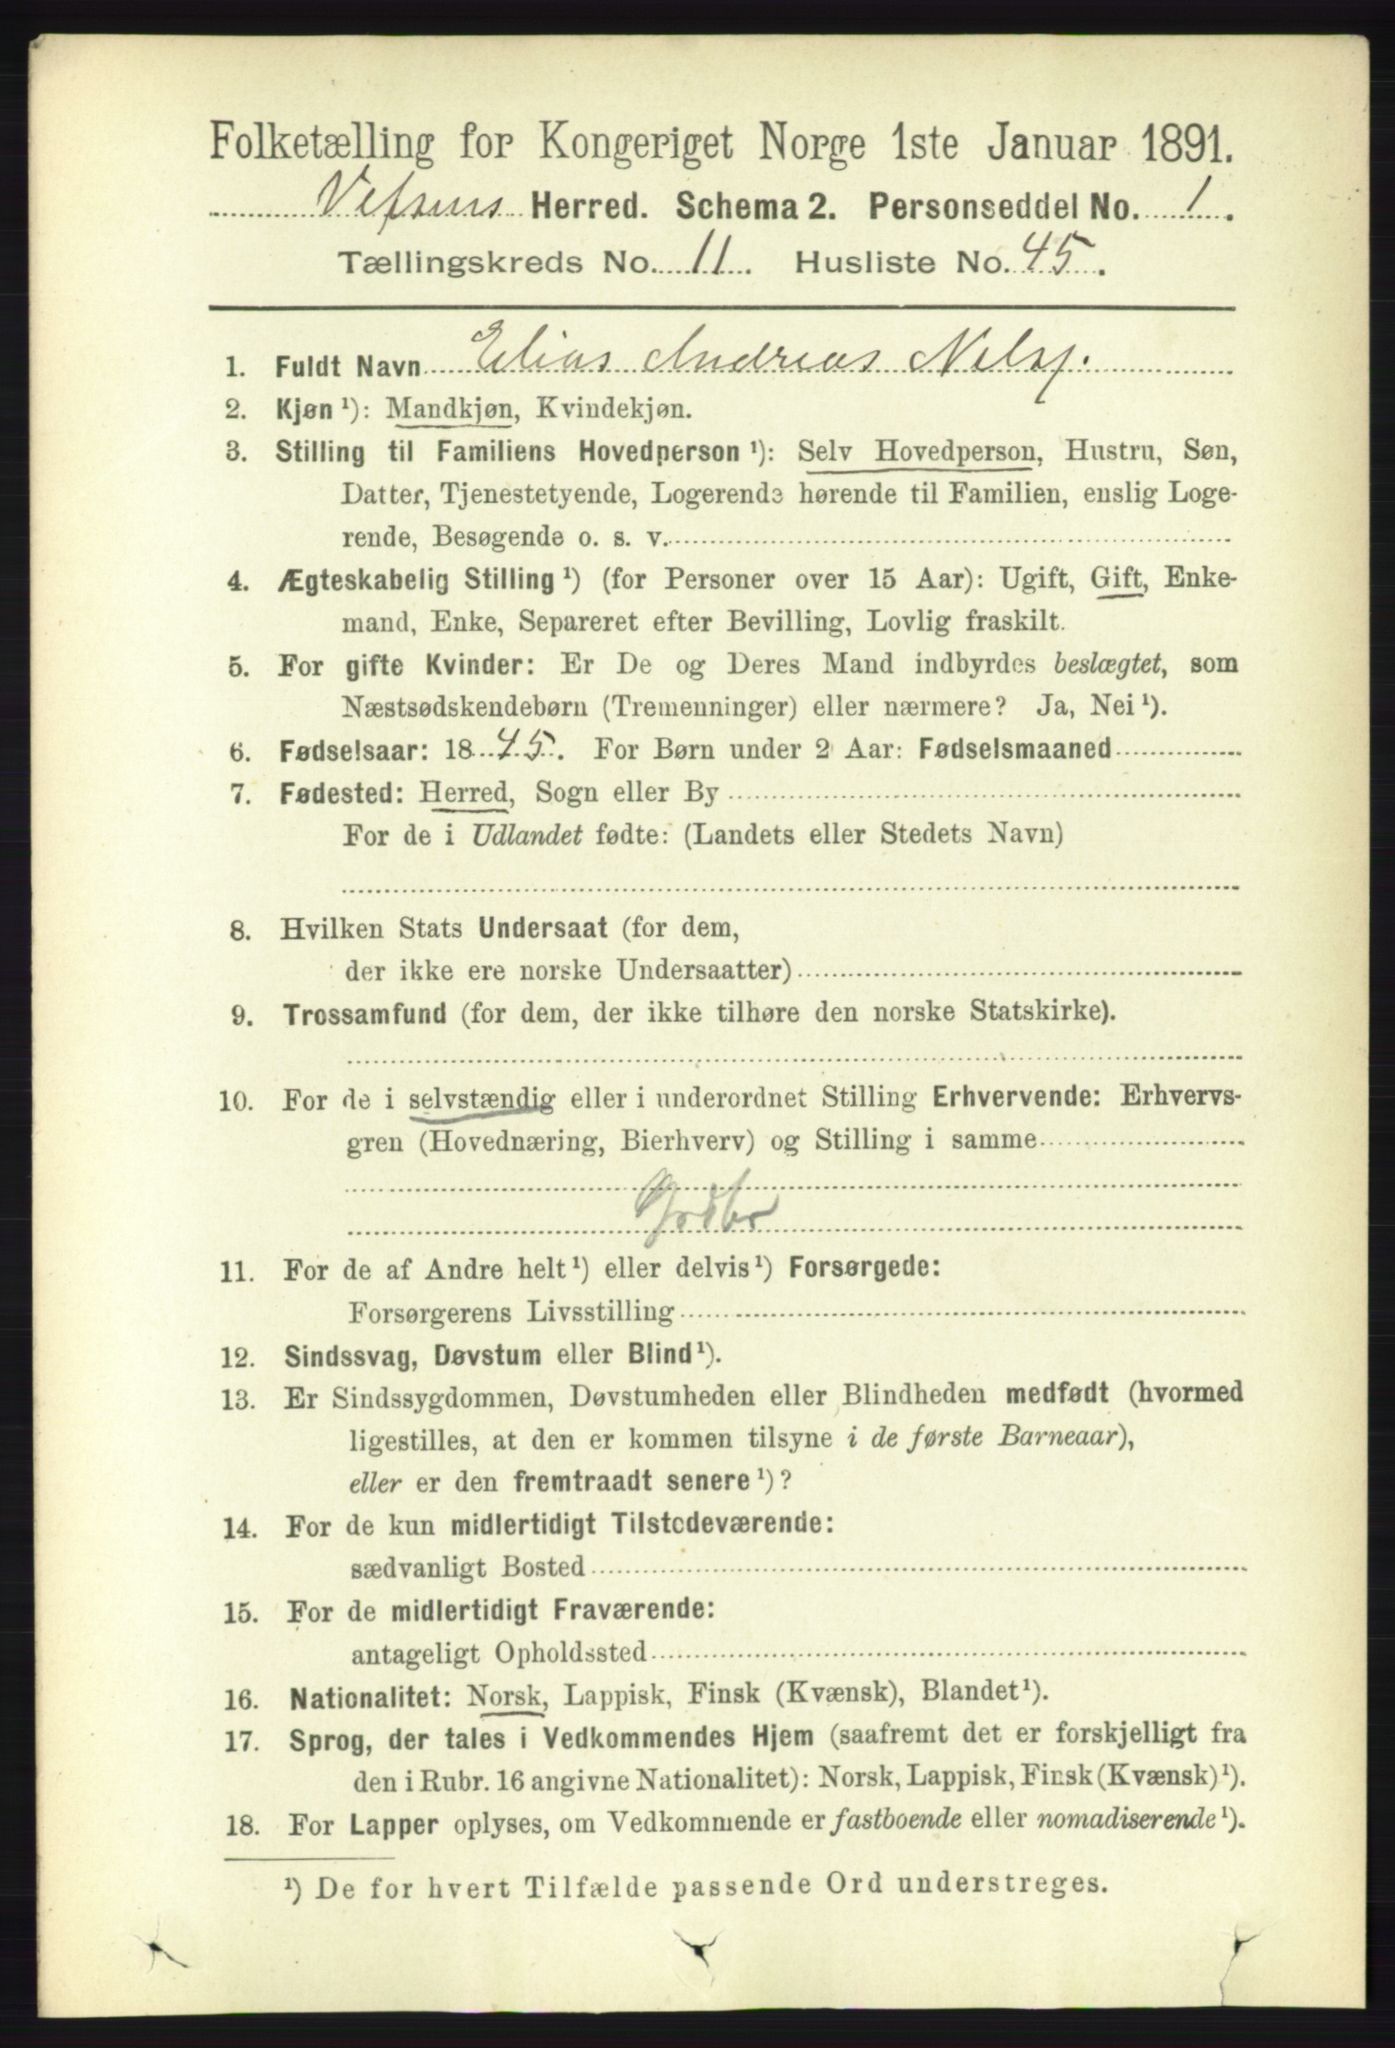 Folketælling for Kongeriget Norge 1ste Januar 1891.
Vefsens Herred. Schema 2. Personseddel No. 1.
Tællingskreds No. 11. Husliste No. 45.
1. Fuldt Navn Elias Andreas Nels.
2. Kjøn ¹): Mandkjøn, Kvindekjøn.
3. Stilling til Familiens Hovedperson ¹): Selv Hovedperson, Hustru, Søn,
Datter, Tjenestetyende, Logerende hørende til Familien, enslig Loge-
rende, Besøgende o. s. v.
4. Ægteskabelig Stilling ¹) (for Personer over 15 Aar): Ugift, Gift, Enke-
mand, Enke, Separeret efter Bevilling, Lovlig fraskilt.
5. For gifte Kvinder: Er De og Deres Mand indbyrdes beslægtet, som
Næstsødskendebørn (Tremenninger) eller nærmere? Ja, Nei ¹).
6. Fødselsaar: 1845. For Børn under 2 Aar: Fødselsmaaned
7. Fødested: Herred, Sogn eller By
For de i Udlandet fødte: (Landets eller Stedets Navn)
8. Hvilken Stats Undersaat (for dem,
der ikke ere norske Undersaatter)
9. Trossamfund (for dem, der ikke tilhøre den norske Statskirke).
10. For de i selvstændig eller i underordnet Stilling Erhvervende: Erhvervs-
gren (Hovednæring, Bierhverv) og Stilling i samme
Grdbr
11. For de af Andre helt ¹) eller delvis ¹) Forsørgede:
Forsørgerens Livsstilling
12. Sindssvag, Døvstum eller Blind ¹).
13. Er Sindssygdommen, Døvstumheden eller Blindheden medfødt (hvormed
ligestilles, at den er kommen tilsyne i de første Barneaar),
eller er den fremtraadt senere ¹)?
14. For de kun midlertidigt Tilstedeværende:
sædvanligt Bosted
15. For de midlertidigt Fraværende:
antageligt Opholdssted
16. Nationalitet: Norsk, Lappisk, Finsk (Kvænsk), Blandet ¹).
17. Sprog, der tales i Vedkommendes Hjem (saafremt det er forskjelligt fra
den i Rubr. 16 angivne Nationalitet): Norsk, Lappisk, Finsk (Kvænsk) ¹).
18. For Lapper oplyses, om Vedkommende er fastboende eller nomadiserende ¹).
¹) De for hvert Tilfælde passende Ord understreges.